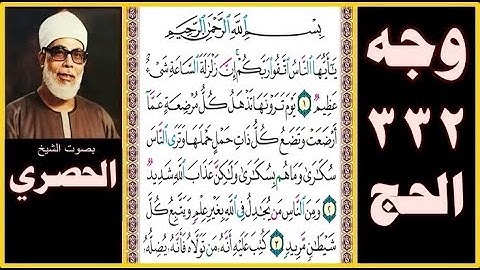 وجه
٣٣٢
الحج
بِسْمِ اللَّهِ الرَّحْمَٰنِ الرَّحِيمِ
يَٰٓأَيُّهَا ٱلنَّاسُ ٱتَّقُوا۟ رَبَّكُمْ ۚ إِنَّ زَلْزَلَةَ ٱلسَّاعَةِ شَىْءٌ
عَظِيمٌ ١ يَوْمَ تَرَوْنَهَا تَذْهَلُ كُلُّ مُرْضِعَةٍ عَمَّآ
أَرْضَعَتْ وَتَضَعُ كُلُّ ذَاتِ حَمْلٍ حَمْلَهَا وَتَرَى ٱلنَّاسَ
سُكَٰرَىٰ وَمَا هُم بِسُكَٰرَىٰ وَلَٰكِنَّ عَذَابَ ٱللَّهِ شَدِيدٌ
٢ وَمِنَ ٱلنَّاسِ مَن يُجَٰدِلُ فِى ٱللَّهِ بِغَيْرِ عِلْمٍ وَيَتَّبِعُ كُلَّ
شَيْطَٰنٍ مَّرِيدٍ ٣ كُتِبَ عَلَيْهِ أَنَّهُۥ مَن تَوَلَّاهُ فَأَنَّهُۥ يُضِلُّهُۥ
بصوت الشيخ
الحصري